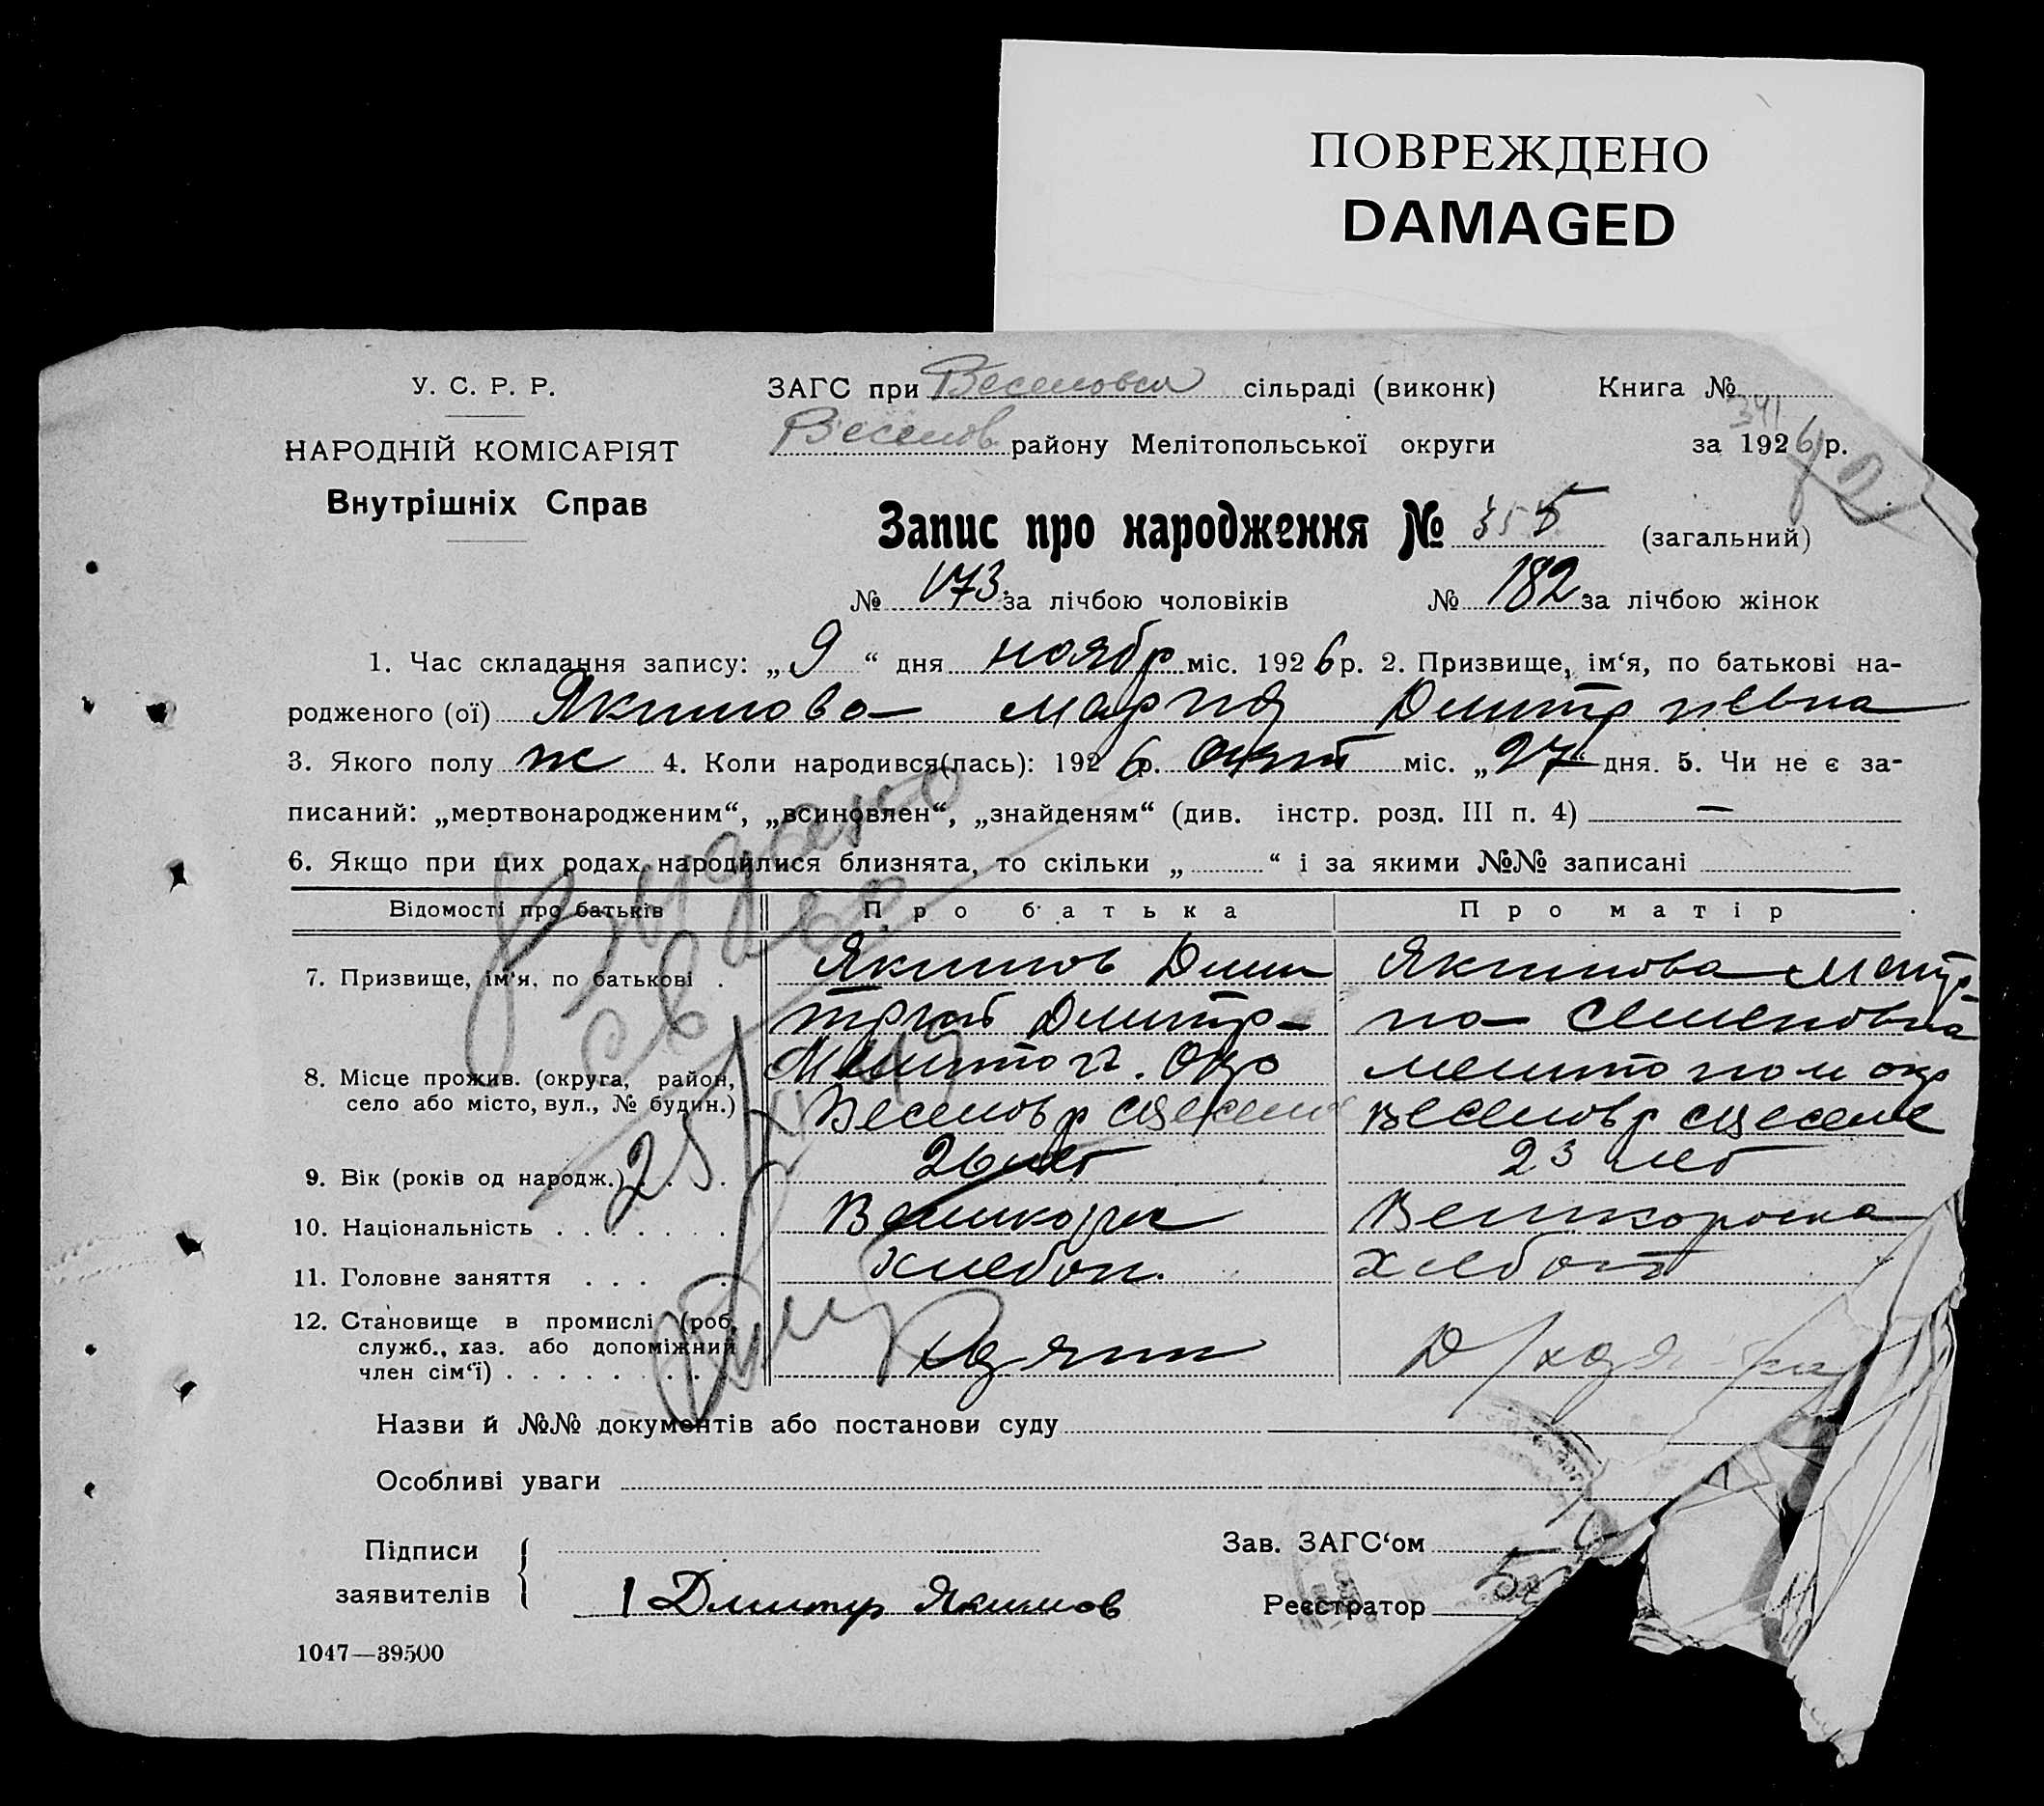 ПОВРЕЖДЕНО
DAMAGED
У. С. Р. Р.
НАРОДНІЙ КОМІСАРІЯТ
Внутрішніх Справ
ЗАГС при Веселовск сільраді (виконк)
Веселов. району Мелітопольської округи
Книга № 341
за 1926 р.
Запис про народження № 355 (загальний)
№ 173 за лічбою чоловіків № 182 за лічбою жінок
1. Час складання запису: „9“ дня ноябр міс. 1926 р. 2. Призвище, ім‘я, по батькові на-
родженого (ої) Якимова Мария Дмитриевна
3. Якого полу ж 4. Коли народився(лась): 1926 р. окт міс. „27“ дня. 5. Чи не є за-
писаний: „мертвонародженим“, „всиновлен“, „знайденям“ (див. інстр. розд. III п. 4) —
6. Якщо при цих родах народилися близнята, то скільки „ “ і за якими №№ записані
Відомості про батьків Про батька Про матір
7. Призвище, ім‘я, по батькові . Якимов Дми Якимова Матр
трий Дмитр- на Семеновна
8. Місце прожив. (округа, район, Мелитоп. Окр Мелитопол окр
село або місто, вул., № будин.) Веселов р с Веселое Веселов р с Веселое
9. Вік (років од народж.) . . . 26 лет 23 лет
10. Національність . . . . . . . Великорос Великороска
11. Головне заняття . . . Хлебоп. Хлебоп
12. Становище в промислі (роб.
служб., хаз. або допоміжний
член сім‘ї) . . . . . . . Хозяин Д/хозя
Видано
св во
25
Назви й №№ документів або постанови суду
Особливі уваги
Підписи
заявителів
1 Дмитр Якимов
Зав. ЗАГС‘ом
Реєстратор
1047—39500